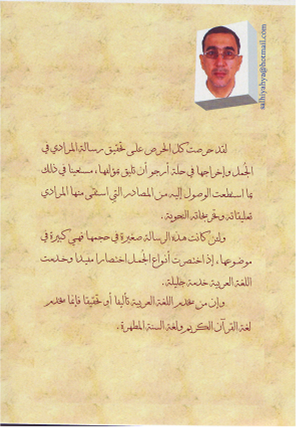 salhiyahya@hotmail.com
لقد حرصت كل الحرص على تحقيق رسالة المرادي في
الجُمل وإخراجها في حلة أرجو أن تليق بمؤلفها، مستعينا في ذلك
بما استطعت الوصول إليه من المصادر التي استقى منها المرادي
تعليقاته وتخريجاته النحوية.
ولئن كانت هذه الرسالة صغيرة في حجمها فهي كبيرة في
موضوعها، إذ اختصرت أنواع الجُمل اختصارا مفيدا وخدمت
اللغة العربية خدمة جليلة.
وإن من يخدم اللغة العربية تأليفا أو تحقيقا فإنما يخدم
لغة القرآن الكريم ولغة السنة المطهرة.